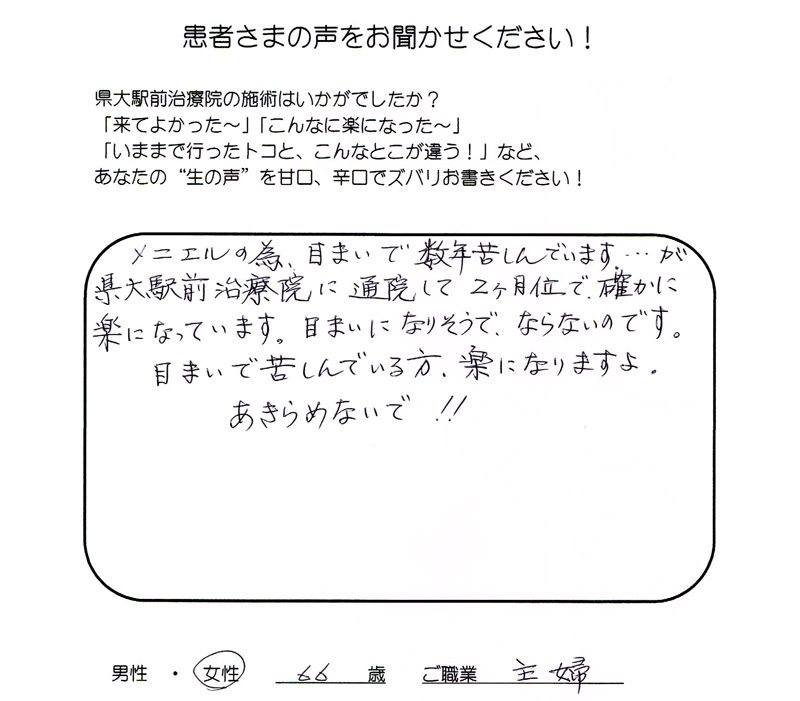 患者さまの声をお聞かせください！
県大駅前治療院の施術はいかがでしたか？
「来てよかった～」「こんなに楽になった～」
「いままで行ったトコと、こんなとこが違う！」など、
あなたの“生の声”を甘口、辛口でズバリお書きください！
メニエルの為、目まいで数年苦しんでいます…が
県大駅前治療院に通院して2ヶ月位で、確かに
楽になっています。目まいになりそうで、ならないのです。
目まいで苦しんでいる方、楽になりますよ。
あきらめないで!!
男性・女性 66歳 ご職業 主婦